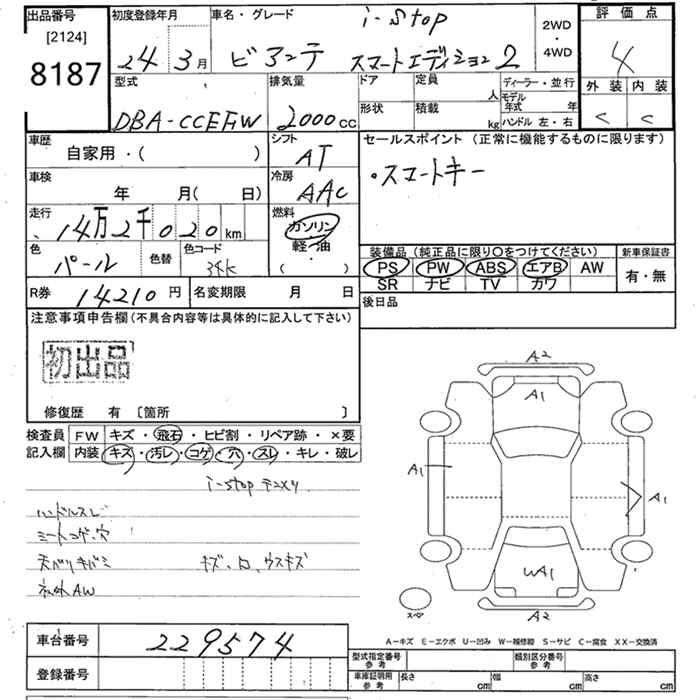 出品番号
[2124]
8187
初度登録年月
24 3月
車名・グレード
i-stop
ビアンテ スマートエディション2
2WD
・
4WD
評価点
4
外装 内装
C C
型式
DBA-CCEFW
排気量
2000cc
ドア
定員
人
形状
積載
kg
ディーラー・並行
モデル年式 年
ハンドル 左・右
車歴
自家用・( )
シフト
AT
車検
年 月( 日)
冷房
AAC
走行
14万2千020km
燃料
ガソリン
軽・油
( ・ )
色
パール
色替
色コード
34K
R券 14210円
名変期限 月 日
セールスポイント (正常に機能するものに限ります)
・スマートキー
装備品 (純正品に限り〇をつけてください)
PS PW ABS エアB AW
SR ナビ TV カワ
新車保証書
有・無
後日品
注意事項申告欄(不具合内容等は具体的に記入して下さい)
初出品
修復歴 有 〔箇所 〕
検査員記入欄
FW キズ・飛石・ヒビ割・リペア跡・×要
内装 キズ・汚レ・コゲ・穴・スレ・キレ・破レ
i-stop テンメツ
ハンドルスレ
シートコゲ、穴
天バリキバミ
キズ、凹、ウスキズ
社外AW
A2
A1
A1
A1
WA1
A2
スペア
A-キズ E-エクボ U-凹み W-補修跡 S-サビ C-腐食 XX-交換済
車台番号 229574
登録番号
型式指定番号 参考
類別区分番号 参考
車庫証明用 参考
長さ cm
幅 cm
高さ cm